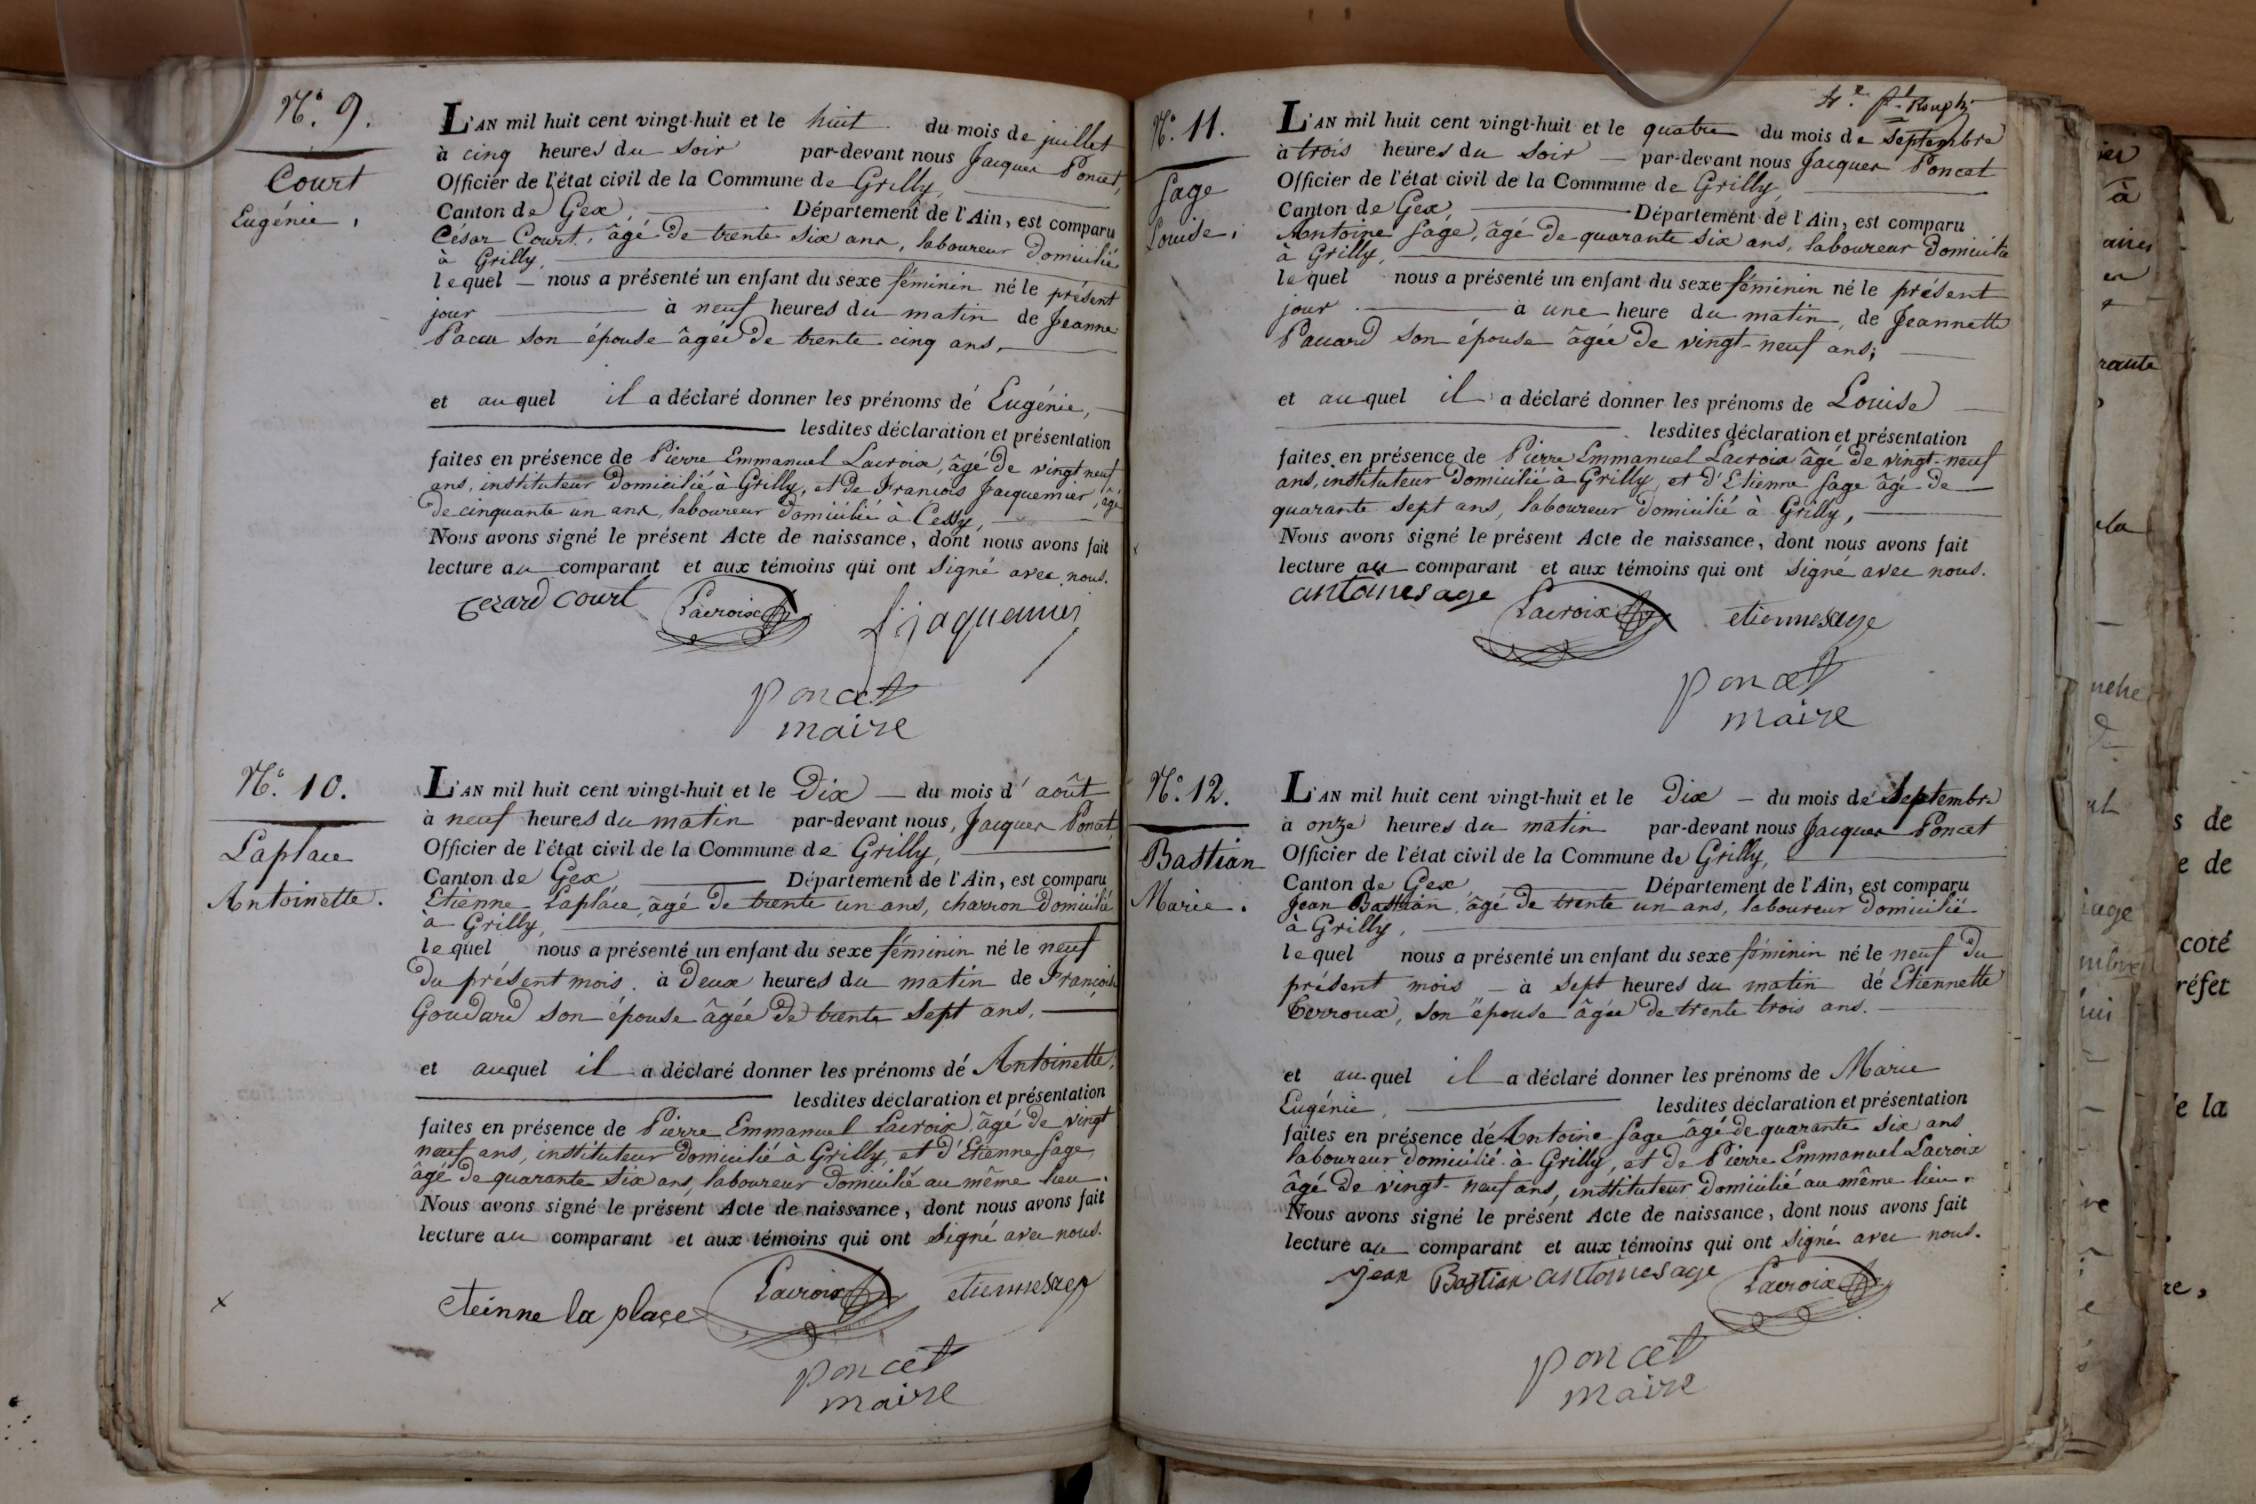 N.° 9.
Court
Eugénie,
L'AN mil huit cent vingt-huit et le huit du mois de juillet
à cinq heures du soir par-devant nous Jacques Poncet,
Officier de l'état civil de la Commune de Grilly,
Canton de Gex, Département de l'Ain, est comparu
César Court, âgé de trente six ans, laboureur domicilié
à Grilly,
lequel nous a présenté un enfant du sexe féminin né le présent
jour à neuf heures du matin de Jeanne
Pacau son épouse âgée de trente cinq ans,
et auquel il a déclaré donner les prénoms de Eugénie,
lesdites déclaration et présentation
faites en présence de Pierre Emmanuel Lacroix, âgé de vingt neuf
ans, instituteur domicilié à Grilly, et de François Jacquemier, âgé
de cinquante un ans, laboureur domicilié à Cessy,
Nous avons signé le présent Acte de naissance, dont nous avons fait
lecture au comparant et aux témoins qui ont signé avec nous.
Cezard Court Lacroix f jaquemier
Poncet
maire
N.° 10.
Laplace
Antoinette.
L'AN mil huit cent vingt-huit et le Dix du mois d'août
à neuf heures du matin par-devant nous, Jacques Poncet
Officier de l'état civil de la Commune de Grilly,
Canton de Gex Département de l'Ain, est comparu
Etienne Laplace, âgé de trente un ans, charron domicilié
à Grilly,
lequel nous a présenté un enfant du sexe féminin né le neuf
du présent mois à deux heures du matin de Françoise
Goudard son épouse âgée de trente sept ans,
et auquel il a déclaré donner les prénoms dé Antoinette,
lesdites déclaration et présentation
faites en présence de Pierre Emmanuel Lacroix, âgé de vingt
neuf ans, instituteur domicilié à Grilly, et d'Etienne Sage,
âgé de quarante six ans, laboureur domicilié au même lieu.
Nous avons signé le présent Acte de naissance, dont nous avons fait
lecture au comparant et aux témoins qui ont signé avec nous.
x
eteinne la place Lacroix etiennesage
Poncet
maire
N.° 11.
Sage
Louise,
L'AN mil huit cent vingt-huit et le quatre du mois de Septembre
à trois heures du soir par-devant nous Jacques Poncet
Officier de l'état civil de la Commune de Grilly,
Canton de Gex, Département de l'Ain, est comparu
Antoine Sage, âgé de quarante six ans, laboureur domicilié
à Grilly,
lequel nous a présenté un enfant du sexe féminin né le présent
jour à une heure du matin, de Jeannette
Pauard son épouse âgée de vingt-neuf ans;
et auquel il a déclaré donner les prénoms de Louise
lesdites déclaration et présentation
faites en présence de Pierre Emmanuel Lacroix âgé de vingt-neuf
ans, instituteur domicilié à Grilly, et d'Etienne Sage âgé de
quarante sept ans, laboureur domicilié à Grilly,
Nous avons signé le présent Acte de naissance, dont nous avons fait
lecture au comparant et aux témoins qui ont signé avec nous.
antoinesage Lacroix etiennesage
Poncet
maire
N.° 12.
Bastian
Marie.
L'AN mil huit cent vingt-huit et le Dix du mois de Septembre
à onze heures du matin par-devant nous Jacques Poncet
Officier de l'état civil de la Commune de Grilly,
Canton de Gex Département de l'Ain, est comparu
Jean Bastian, âgé de trente un ans, laboureur domicilié
à Grilly,
lequel nous a présenté un enfant du sexe féminin né le neuf du
présent mois à sept heures du matin dé Etiennette
Terroux, son épouse âgée de trente trois ans.
et auquel il a déclaré donner les prénoms de Marie
Eugénie, lesdites déclaration et présentation
faites en présence dé Antoine Sage âgé de quarante six ans
laboureur domicilié à Grilly, et de Pierre Emmanuel Lacroix
âgé de vingt-neuf ans, instituteur domicilié au même lieu.
Nous avons signé le présent Acte de naissance, dont nous avons fait
lecture au comparant et aux témoins qui ont signé avec nous.
Jean Bastian antoinesage Lacroix
Poncet
maire
s de
e de
coté
réfet
e la
re,